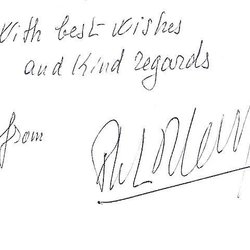 With best wishes
and kind regards
from